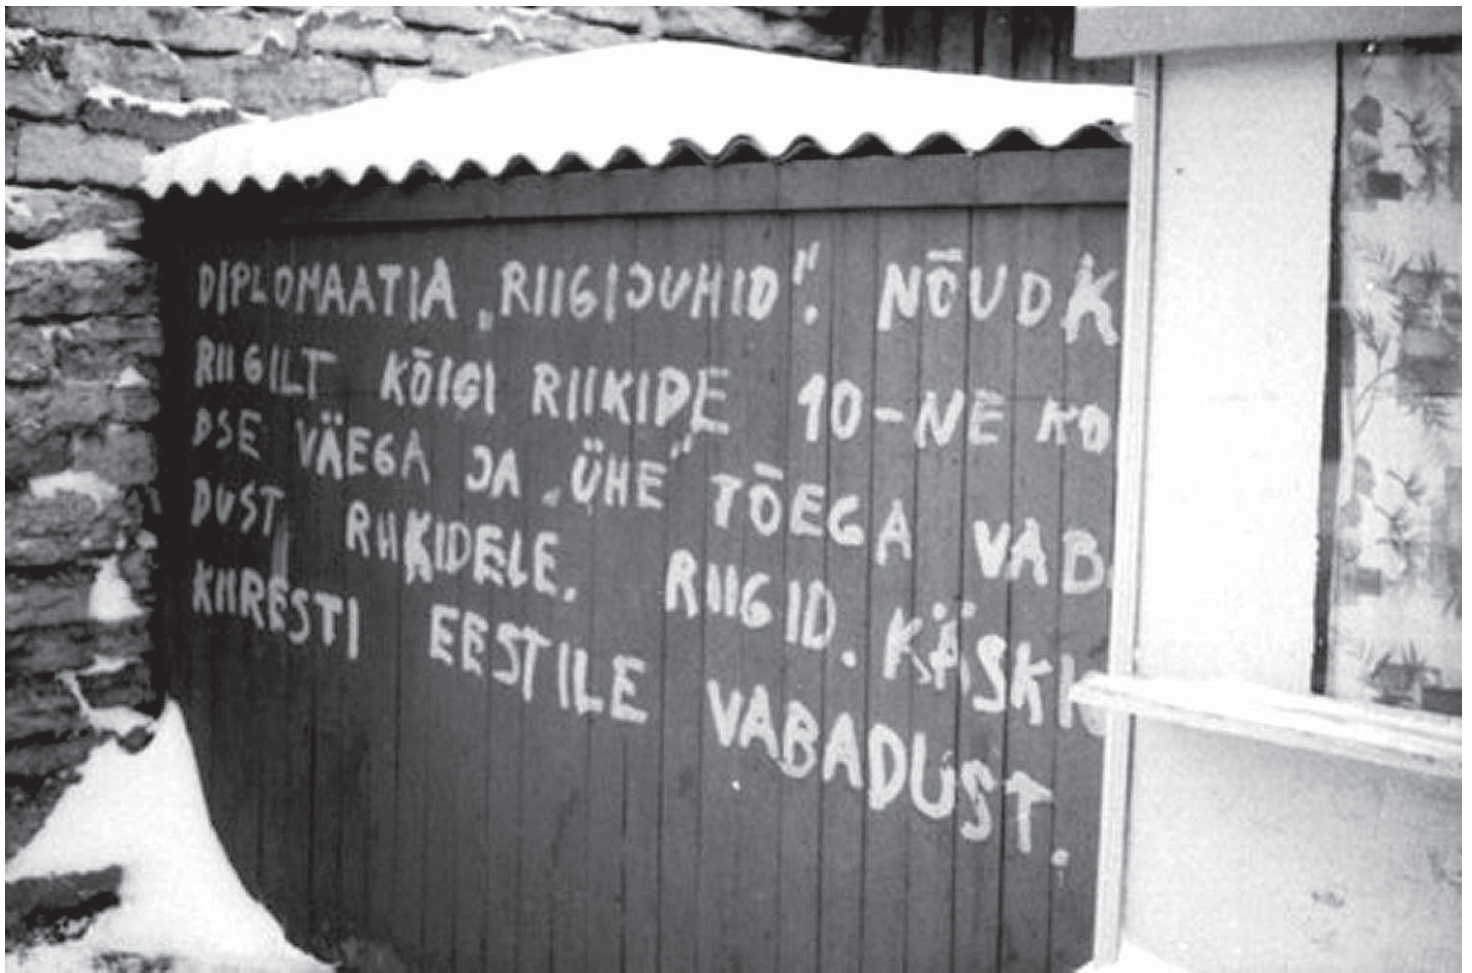 DIPLOMAATIA „RIIGIJUHID". NÕUDK
RIIGILT KÕIGI RIIKIDE 10-NE KO
DSE VÄEGA JA „ÜHE" TÕEGA VAB
DUST, RIIKIDELE. RIIGID. KÄSKI
KIIRESTI EESTILE VABADUST.